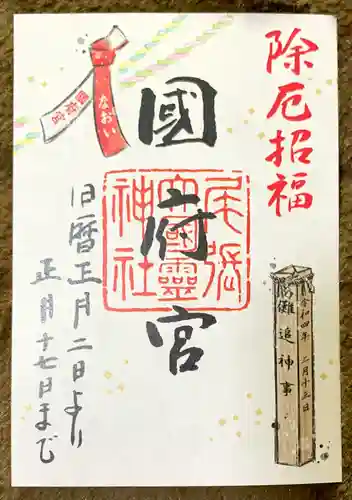 除厄招福
國府宮
尾張
大國靈
神社
なおい
國府宮
旧暦正月二日より
正月十七日まで
儺追神事
令和四年 二月十三日